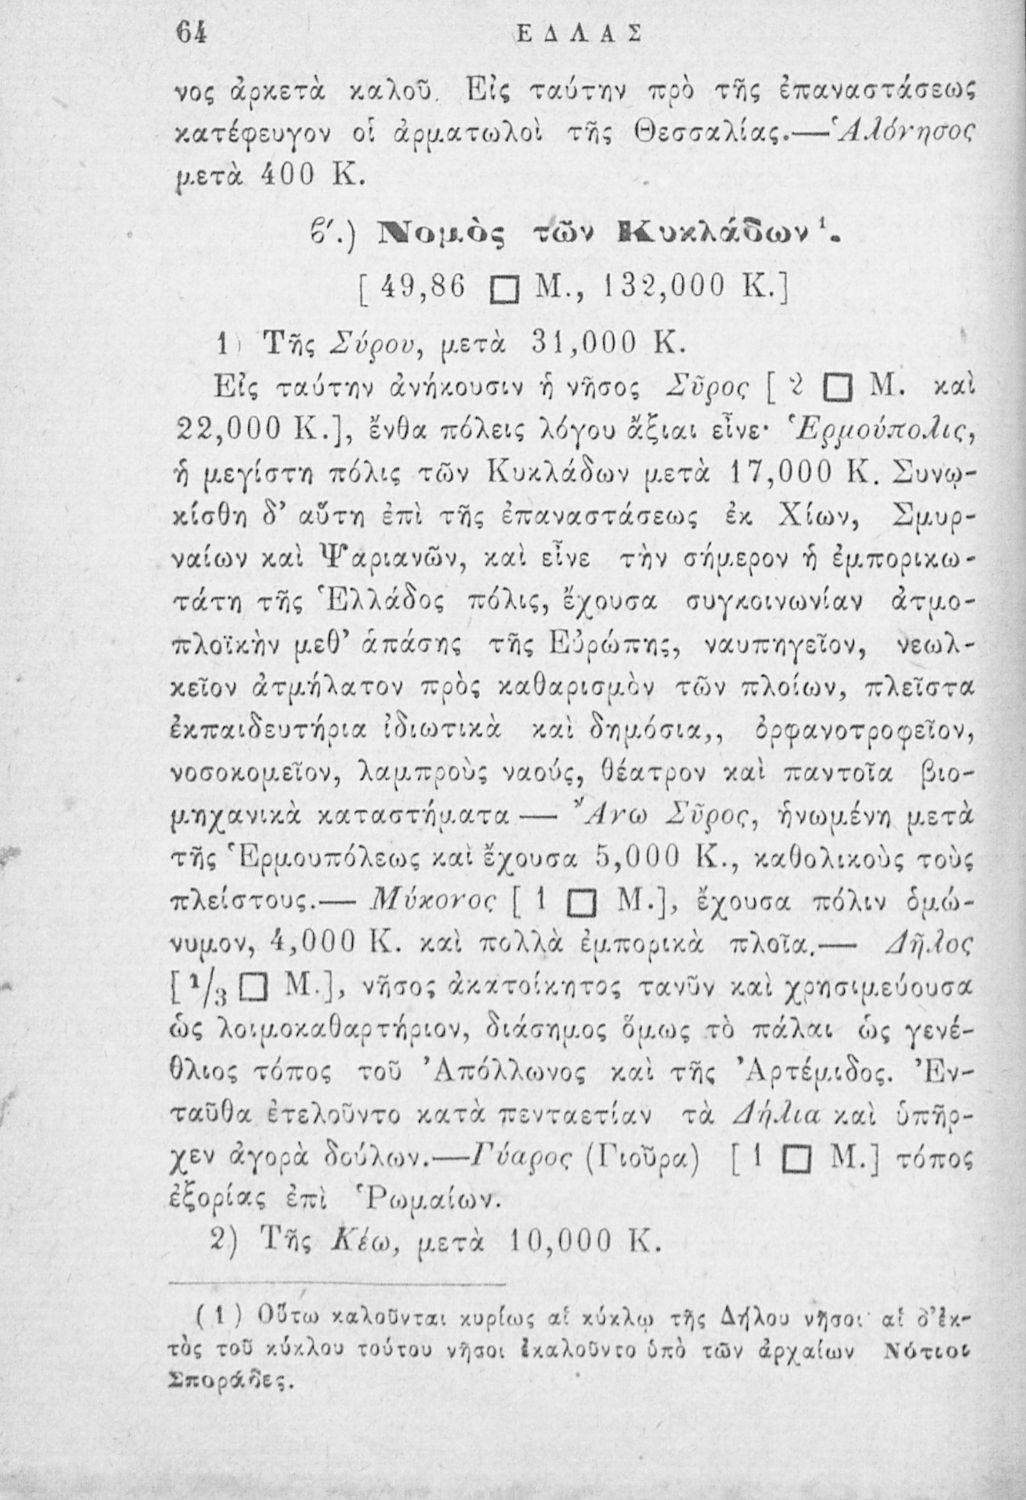 64 ΕΔΛΑΣ
νος ἀρκετὰ καλοῦ. Εἰς ταύτην πρὸ τῆς ἐπαναστάσεως
κατέφευγον οἱ ἀρματωλοὶ τῆς Θεσσαλίας.—Ἁλόνησος
μετὰ 400 Κ.
ϐ′.) Νομὸς τῶν Κυκλάδων¹.
[ 49,86 □ Μ., 132,000 Κ.]
1) Τῆς Σύρου, μετὰ 31,000 Κ.
Εἰς ταύτην ἀνήκουσιν ἡ νῆσος Σῦρος [ 2 □ Μ. καὶ
22,000 Κ.], ἔνθα πόλεις λόγου ἄξιαι εἶνε· Ἑρμούπολις,
ἡ μεγίστη πόλις τῶν Κυκλάδων μετὰ 17,000 Κ. Συνῳ-
κίσθη δ’ αὕτη ἐπὶ τῆς ἐπαναστάσεως ἐκ Χίων, Σμυρ-
ναίων καὶ Ψαριανῶν, καὶ εἶνε τὴν σήμερον ἡ ἐμπορικω-
τάτη τῆς Ἑλλάδος πόλις, ἔχουσα συγκοινωνίαν ἀτμο-
πλοϊκὴν μεθ’ ἁπάσης τῆς Εὐρώπης, ναυπηγεῖον, νεωλ-
κεῖον ἀτμήλατον πρὸς καθαρισμὸν τῶν πλοίων, πλεῖστα
ἐκπαιδευτήρια ἰδιωτικὰ καὶ δημόσια,, ὀρφανοτροφεῖον,
νοσοκομεῖον, λαμπροὺς ναούς, θέατρον καὶ παντοῖα βιο-
μηχανικὰ καταστήματα — Ἄνω Σῦρος, ἡνωμένη μετὰ
τῆς Ἑρμουπόλεως καὶ ἔχουσα 5,000 Κ., καθολικοὺς τοὺς
πλείστους.— Μύκονος [ 1 □ Μ.], ἔχουσα πόλιν ὁμώ-
νυμον, 4,000 Κ. καὶ πολλὰ ἐμπορικὰ πλοῖα.— Δῆλος
[ ¹/₃ □ Μ.], νῆσος ἀκατοίκητος τανῦν καὶ χρησιμεύουσα
ὡς λοιμοκαθαρτήριον, διάσημος ὅμως τὸ πάλαι ὡς γενέ-
θλιος τόπος τοῦ Ἀπόλλωνος καὶ τῆς Ἀρτέμιδος. Ἐν-
ταῦθα ἐτελοῦντο κατὰ πενταετίαν τὰ Δήλια καὶ ὑπῆρ-
χεν ἀγορὰ δούλων.—Γύαρος (Γιοῦρα) [ 1 □ Μ.] τόπος
ἐξορίας ἐπὶ Ῥωμαίων.
2) Τῆς Κέω, μετὰ 10,000 Κ.
(1) Οὕτω καλοῦνται κυρίως αἱ κύκλῳ τῆς Δήλου νῆσοι· αἱ δ’ ἐκ-
τὸς τοῦ κύκλου τούτου νῆσοι ἐκαλοῦντο ὑπὸ τῶν ἀρχαίων Νότιοι
Σποράδες.